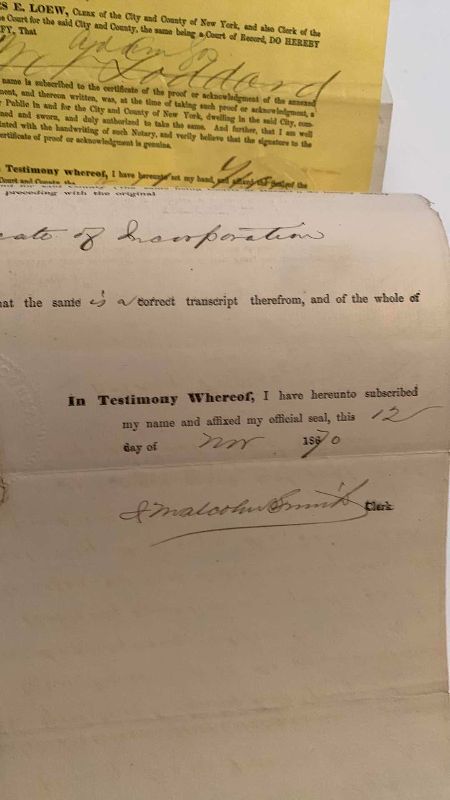 S E. LOEW, CLERK of the City and County of New York, and also Clerk of the
e Court for the said City and County, the same being a Court of Record, DO HEREBY
FY, That
name is subscribed to the certificate of the proof or acknowledgment of the annexed
ment, and thereon written, was, at the time of taking such proof or acknowledgment, a
Public in and for the City and County of New York, dwelling in the said City, com-
ned and sworn, and duly authorized to take the same. And further, that I am well
inted with the handwriting of such Notary, and verily believe that the signature to the
ertificate of proof or acknowledgment is genuine.
Testimony whereof, I have hereunto set my hand, and affixed the Seal of the
Court and County the
preceding with the original
cate of Incorporation
at the same is a correct transcript therefrom, and of the whole of
In Testimony Whereof, I have hereunto subscribed
my name and affixed my official seal, this 12
day of Nov 1870
J Malcolm Smith Clerk